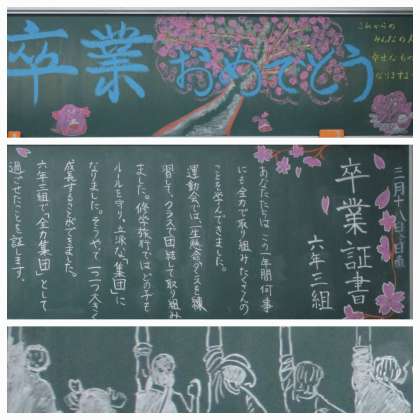 卒業おめでとう
これからの
みんなの人
幸せなもの
なりますよ
三月十八日 日直
卒業証書
六年三組
あなたたちは、この一年間何事
にも全力で取り組み、たくさんの
ことを学んできました。
運動会では、一生懸命ダンスを練
習して、クラスで団結して取り組み
ました。修学旅行ではどの子も
ルールを守り、立派な「集団」に
なりました。そうやって一つ一つ大きく
成長することができました。
六年三組で「全力集団」として
過ごせたことを証します。